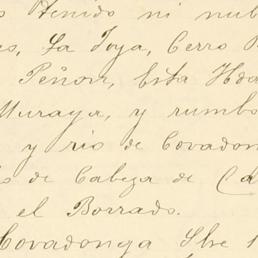 tenido ni nub
es, La Joya, Cerro P
Peñon, Esta Hda
Muraya, y rumbo
y rio de Covadon
de Cabeza de Ca
el Borrado.
Covadonga